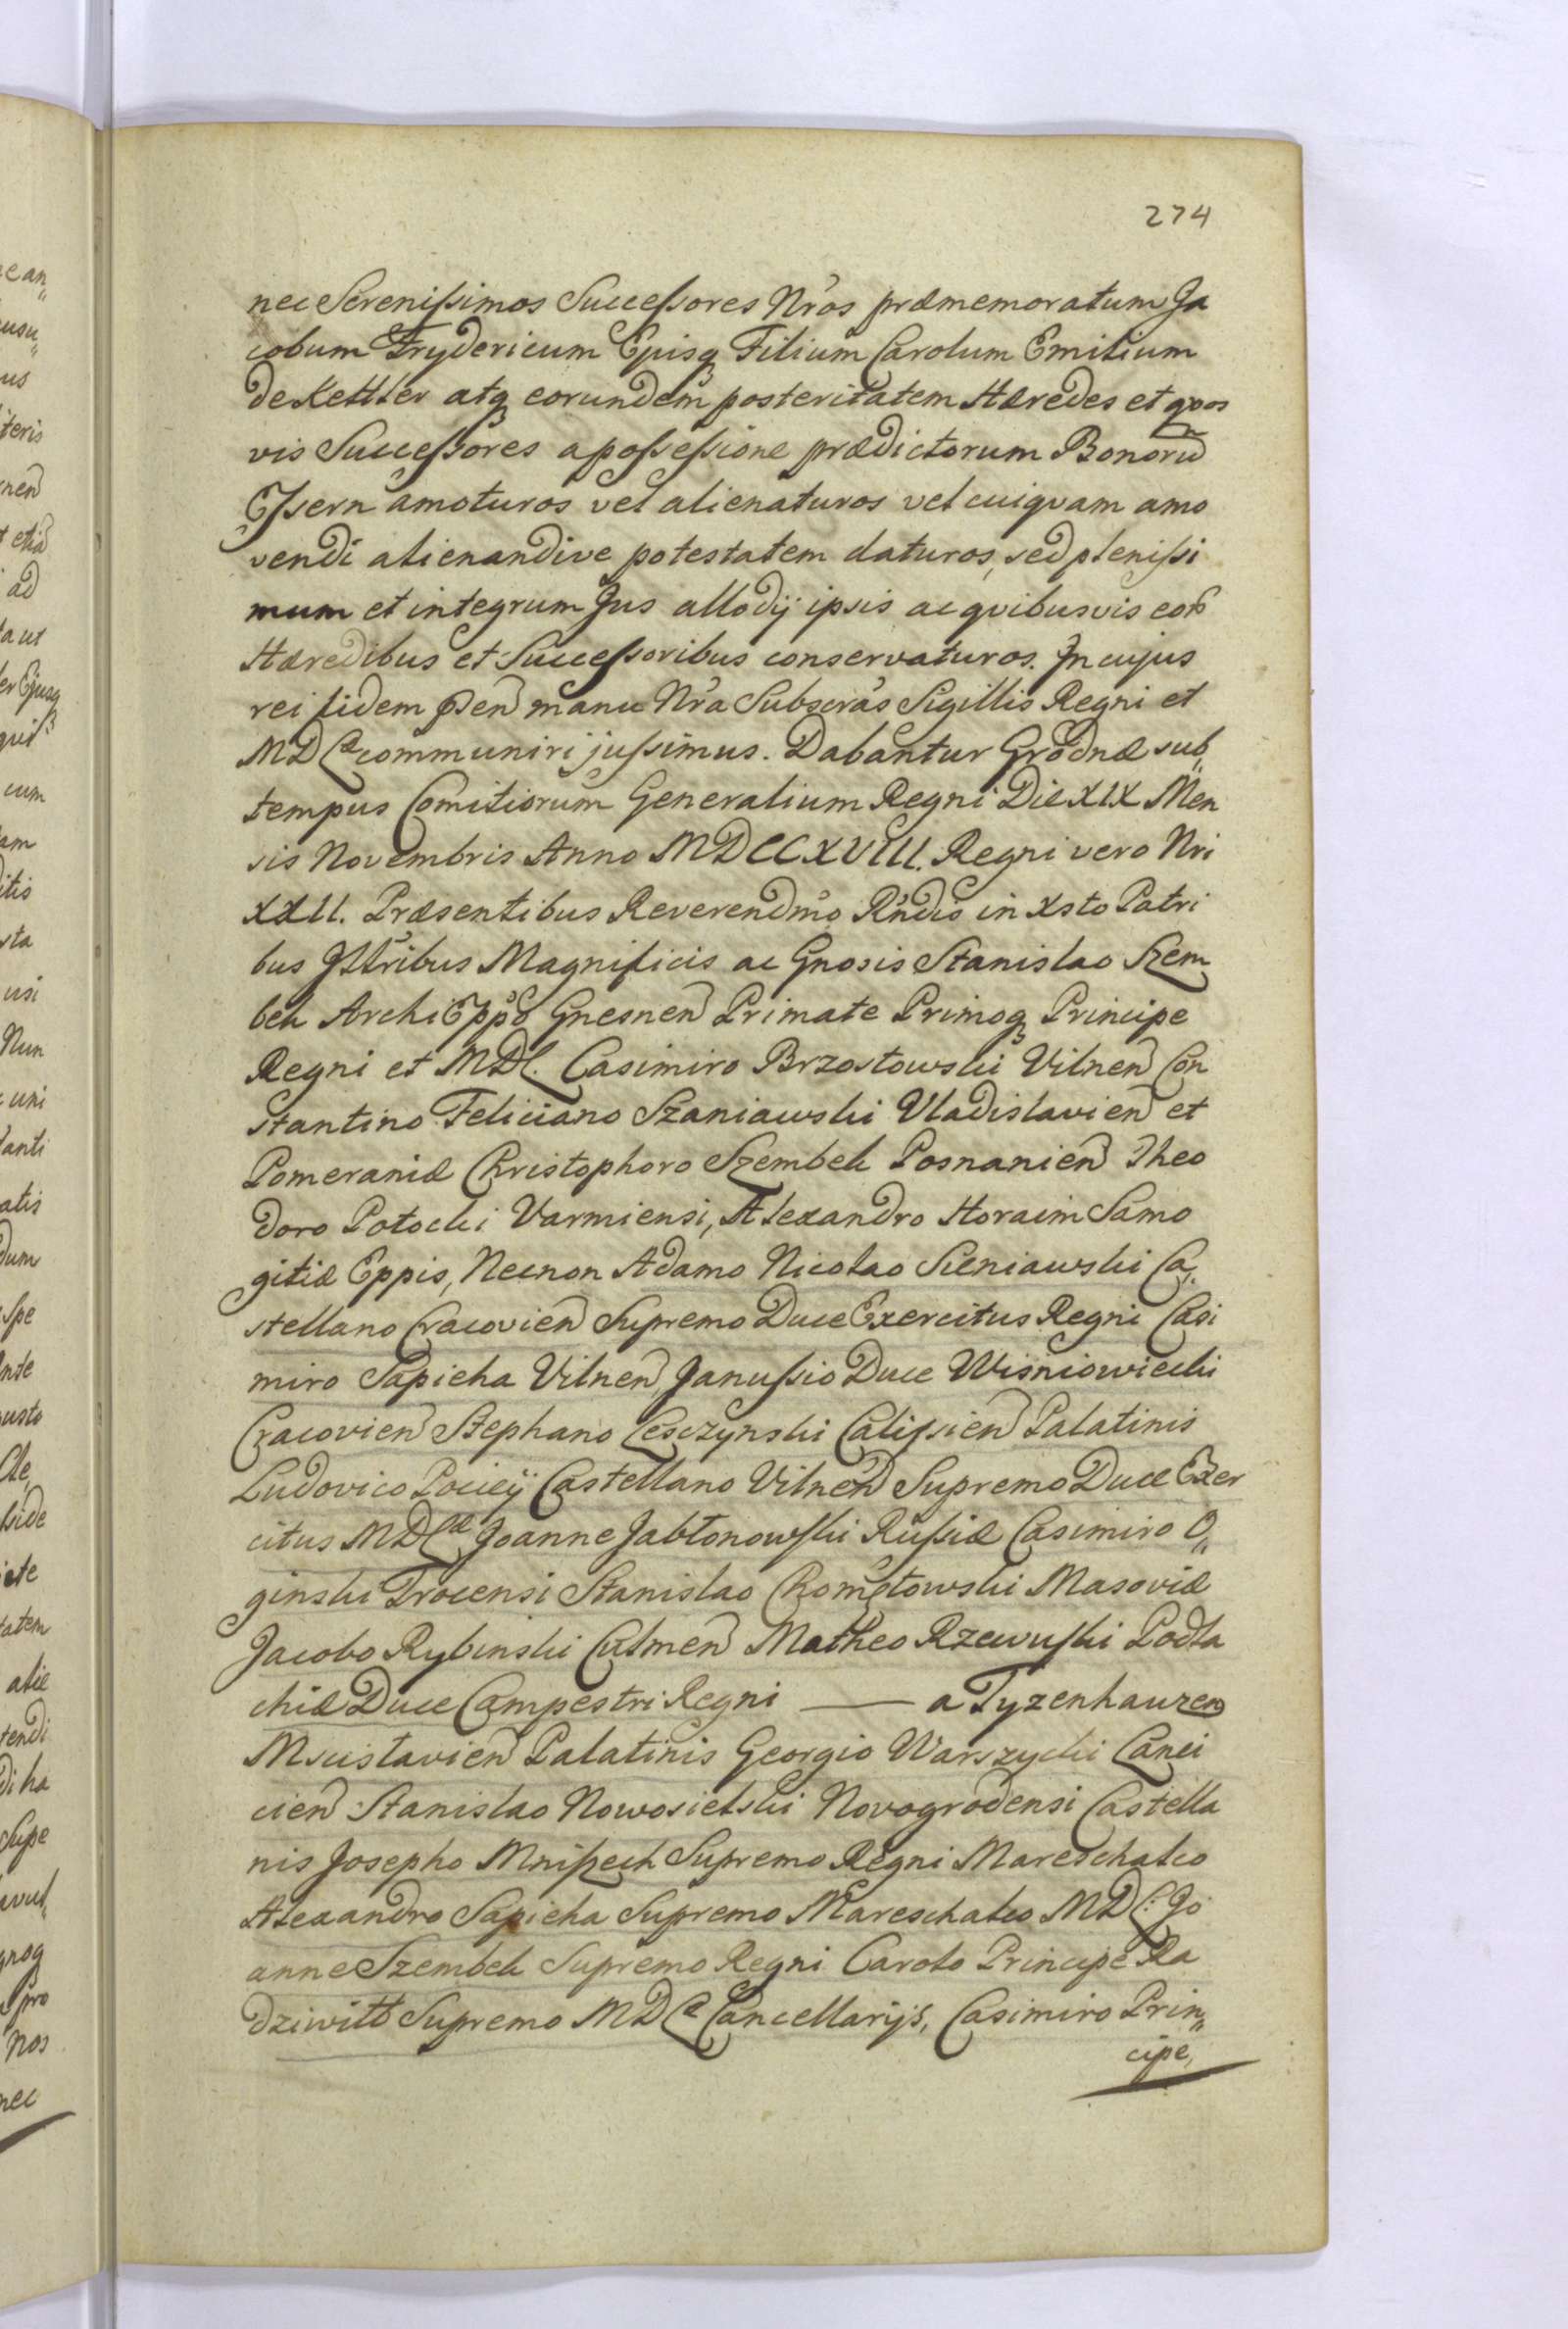 274
nec Serenissimos Successores Nr̃os præmemoratum Ja
cobum Frydericum Ejusq Filium Carolum Emilium
de Kettler atq eorundem posteritatem Hæredes et quos
vis Successores a possessione prædictorum Bonorũ
Essern amoturos vel alienaturos vel cuiqvam amo
vendi alienandive potestatem daturos, sed plenissi
mum et integrum Jus allodij ipsis ac qvibusvis eor̃
Hæredibus et Successoribus conservaturos. In cujus
rei fidem p̃sen manu Nr̃a Subscr̃as Sigillis Regni et
MDL communiri jussimus. Dabantur Grodnæ sub„
tempus Comitiorum Generalium Regni Die XIX Men
sis Novembris Anno MDCCXVIII. Regni vero Nri
XXII. Præsentibus Reverendm̃o Rñdis in Xsto Patri
bus Illr̃ibus Magnificis ac Gnosis Stanislao Szem
bek Archi Epp̃o Gnesnen Primate Primoq Principe
Regni et MDL. Casimiro Brzostowski Vilnen Con
stantino Feliciano Szaniawski Vladislavien et
Pomeraniæ Christophoro Szembek Posnanien Theo
doro Potocki Varmiensi, Alexandro Horaim Samo
gitiæ Eppis, Necnon Adamo Nicolao Sieniawski Ca„
stellano Cracovien Supremo Duce Exercitus Regni Casi
miro Sapieha Vilnen, Janussio Duce Wisniowiecki
Cracovien Stephano Lesczynski Calisien Palatinis
Ludovico Pociey Castellano Vilnen Supremo Duce Exer
citus MDLæ Joanne Jabłonowski Russiæ Casimiro O„
ginski Trocensi Stanislao Chomętowski Masoviæ
Jacobo Rybinski Culmen Matheo Rzewuski Podla
chiæ Duce Campestri Regni —— a Tyzenhauzen
Mscislavien Palatinis Georgio Warszycki Lanci
cien Stanislao Nowosielski Novogrodensi Castella
nis Josepho Mniszech Supremo Regni Mareschalco
Alexandro Sapieha Supremo Mareschalco MDL: Jo
anne Szembek Supremo Regni Carolo Principe Ra
dziwiłł Supremo MDL Cancellarijs, Casimiro Prin„
cipe,